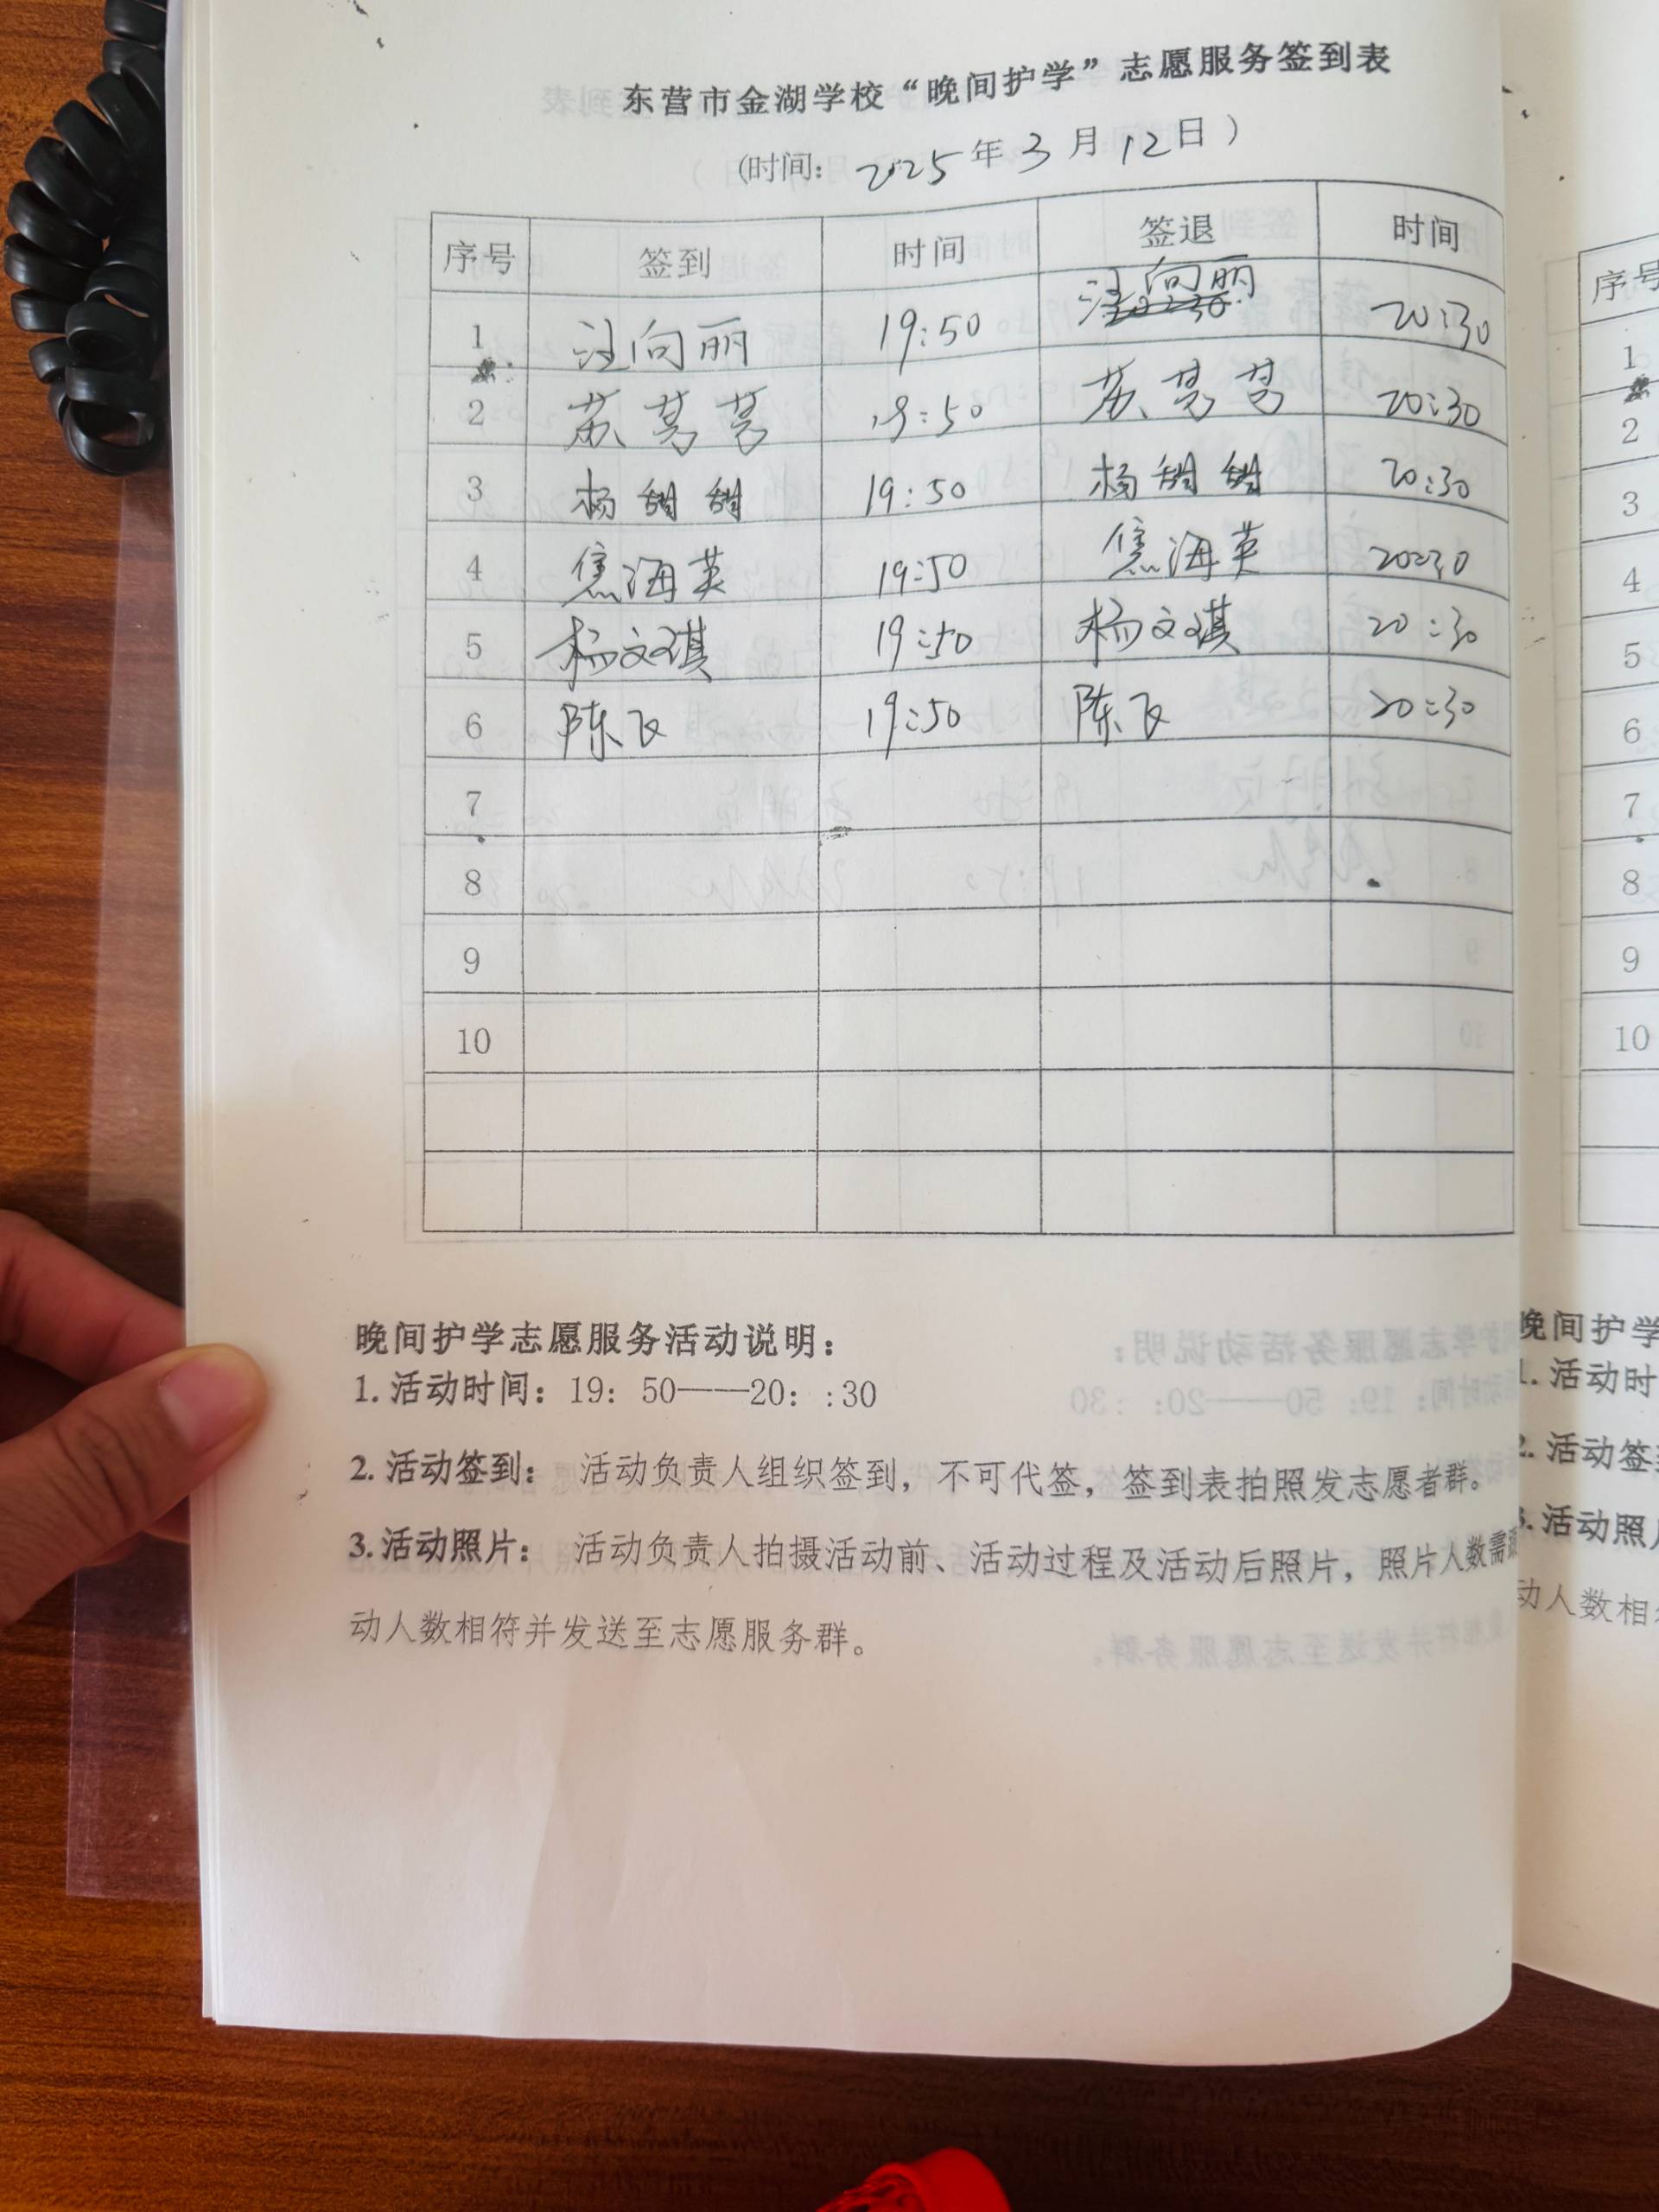 东营市金湖学校“晚间护学”志愿服务签到表
(时间: 2025年3月12日)
序号 签到 时间 签退 时间
1 汪向丽 19:50 汪向丽 20:30
2 苏 19:50 苏 20:30
3 杨甜甜 19:50 杨甜甜 20:30
4 焦海英 19:50 焦海英 20:30
5 杨文琪 19:50 杨文琪 20:30
6 陈飞 19:50 陈飞 20:30
7
8
9
10
晚间护学志愿服务活动说明：
1. 活动时间：19：50——20：:30
2. 活动签到： 活动负责人组织签到，不可代签，签到表拍照发志愿者群。
3. 活动照片： 活动负责人拍摄活动前、活动过程及活动后照片，照片人数需
动人数相符并发送至志愿服务群。
序号
1
2
3
4
5
6
7
8
9
10
晚间护学
1. 活动时
2. 活动签
3. 活动照
动人数相